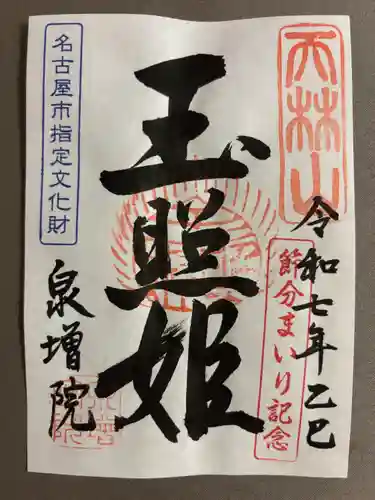 天林山
令和七年乙巳
節分まいり記念
玉照姫
名古屋市指定文化財
泉増院